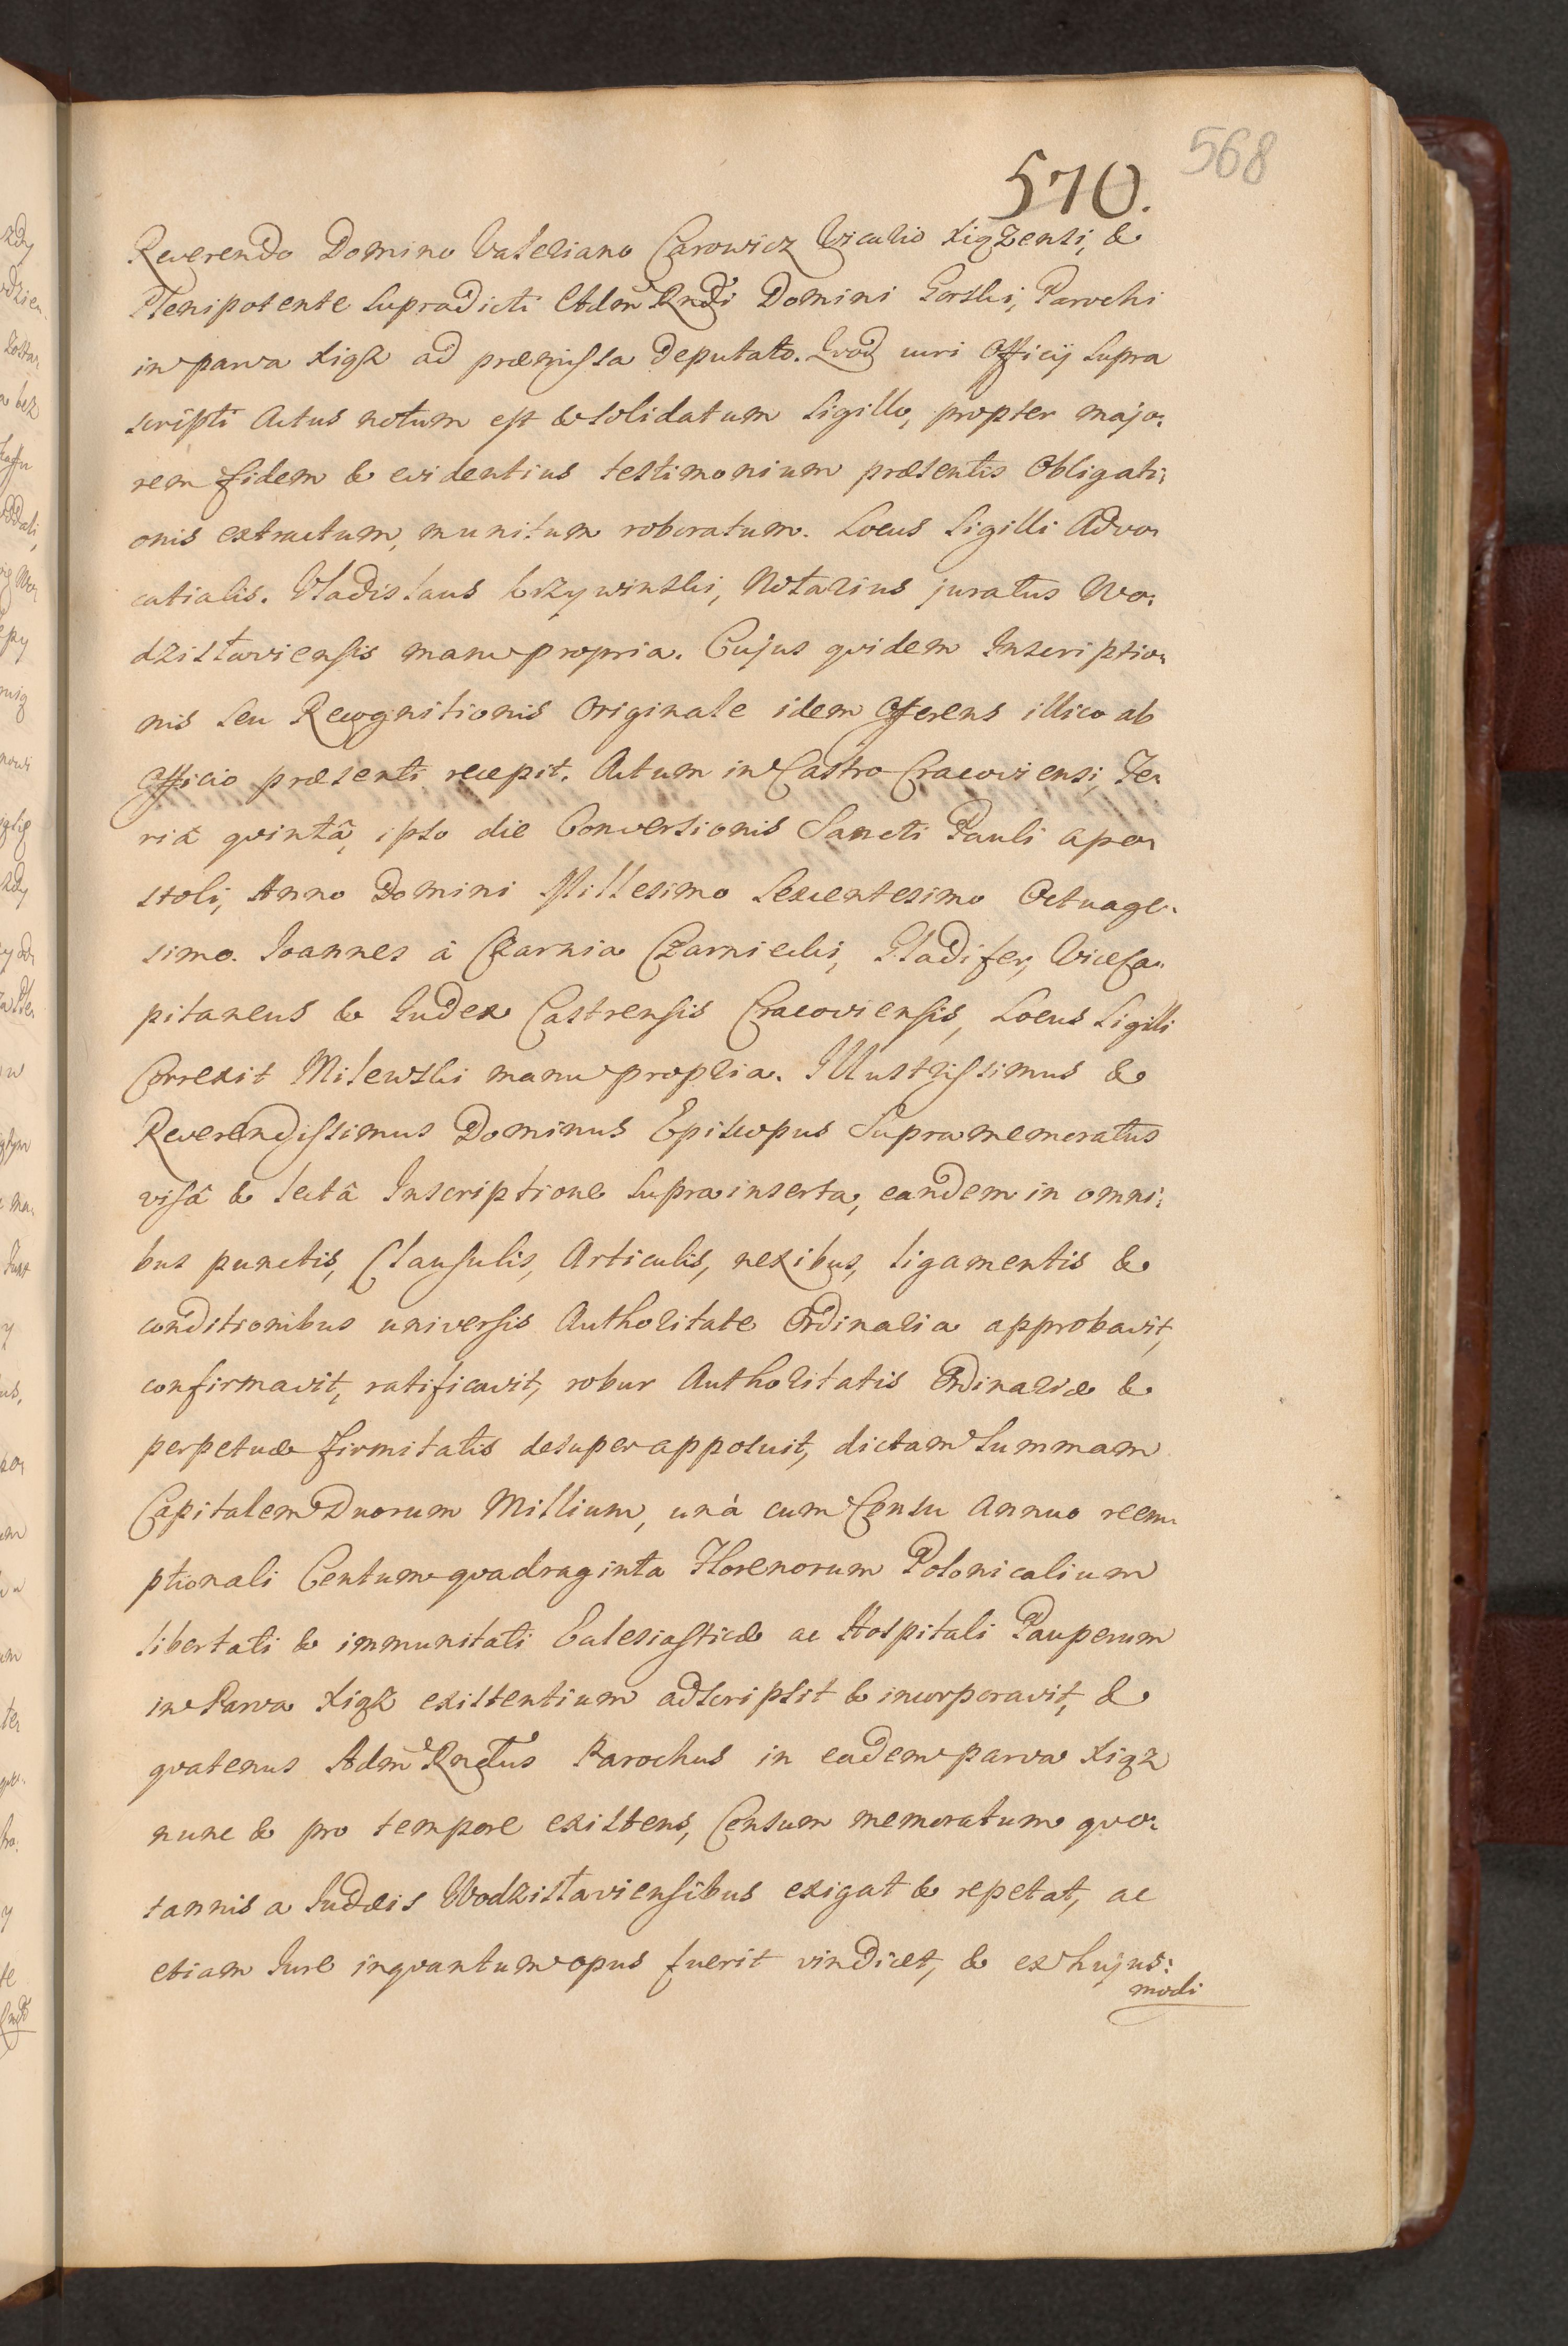 568
570.
Reverendo Domino Valeriano Carowicz Vicario Xiązensi, &
Plenipotente supradicti Adm Rndi Domini Gorski, Parochi
in parva Xiąz ad præmissa deputato. Qvod uti Officij supra
scripti Actus notum est & solidatum Sigillo, propter majo:
rem fidem & evidentius testimonium præsentis Obligati:
onis extractum, munitum roboratum. Locus Sigilli Advo:
catialis. Vladislaus Krzywinski, Notarius juratus Wo:
dzislaviensis manu propria. Cujus qvidem Inscriptio:
nis seu Recognitionis Originale idem Offerens illico ab
Officio præsenti recepit. Actum in Castro Cracoviensi, Fe:
riâ qvintâ, ipso die Conversionis Sancti Pauli Apo:
stoli, Anno Domini Millesimo Sexcentesimo Octuage:
simo. Joannes à Czarnia Czarniecki, Gladifer, ViceCa:
pitaneus & Judex Castrensis Cracoviensis, Locus Sigilli
Correxit Milewski manu propria. Illustrissimus &
Reverendissimus Dominus Episcopus Supramemoratus
visâ & lectâ Inscriptione supra inserta, eandem in omni:
bus punctis, Clausulis, Articulis, nexibus, ligamentis &
conditionibus universis Authoritate Ordinaria approbavit,
confirmavit, ratificavit, robur Authoritatis Ordinariæ &
perpetuæ firmitatis desuper apposuit, dictam Summam
Capitalem Duorum Millium, unà cum Censu Annuo reem:
ptionali Centum qvadraginta Florenorum Polonicalium
libertati & immunitati Eclesiasticæ ac Hospitali Pauperum
in Parva Xiąz existentium adscripsit & incorporavit, &
qvatenus Adm Rndus Parochus in eadem parva Xiąz
nunc & pro tempore existens, Censum memoratum qvo:
tannis a Judæis Wodzislaviensibus exigat & repetat, ac
etiam Jure inqvantum opus fuerit vindicet, & ex hujus:
modi